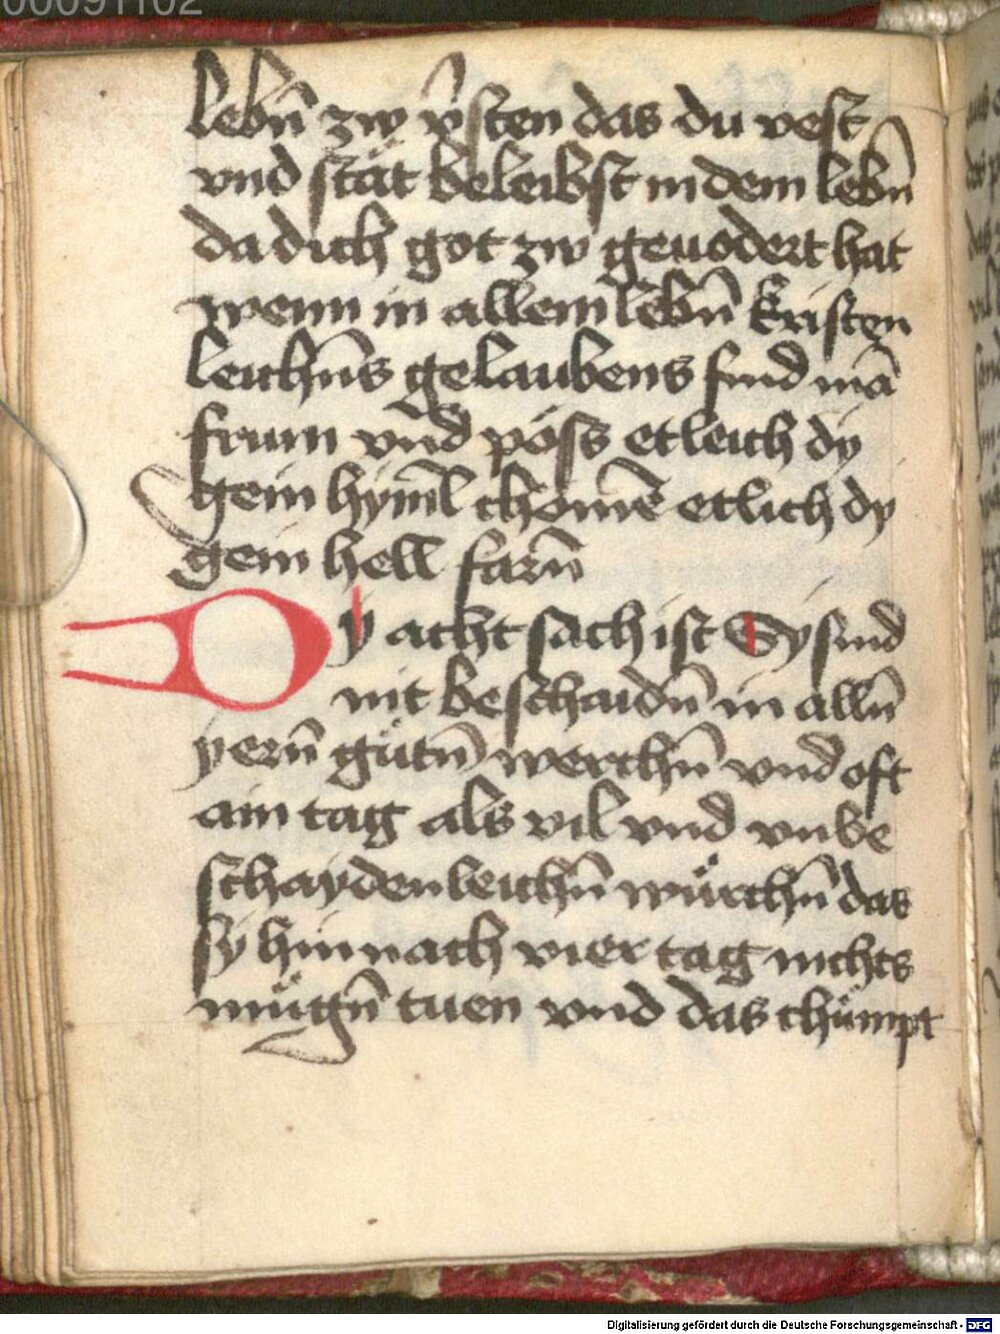 00091102
lebn̄ zw v̊sten das du vest
vnd stät beleibst in dem lebn̄
da dich got zw geuodert hat
wenn in allem lebn̄ kristen
leichn̄s gelaubens find mā
frum vnd pöss etleich dy
gein hyml̄ chomē etlich dy
gein hell farn̄
Dy acht sach ist Sy sind
nit beschaidn̄ in alln̄
yern̄ gůtn̄ werchn̄ vnd oft
ain tag als vil vnd vnbe
schaydenleichn̄ wůrchn̄ das
sy hin nach vier tag nichts
mügn̄ tuen vnd das chümpt
Digitalisierung gefördert durch die Deutsche Forschungsgemeinschaft - DFG